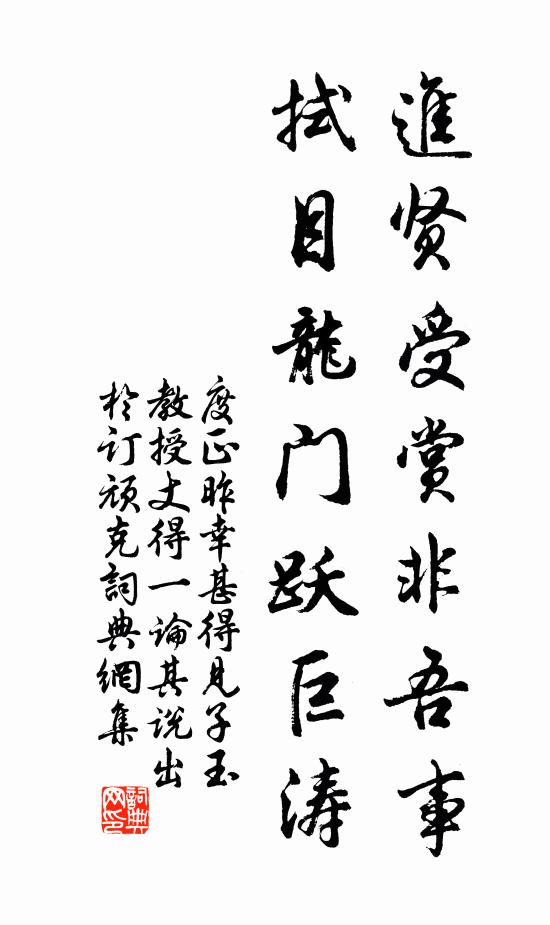 進贤受赏非吾事
拭目龍门跃巨涛
度正昨幸甚得见子玉
教授丈得一論其说出
於订顽克詞典網集
詞典网印